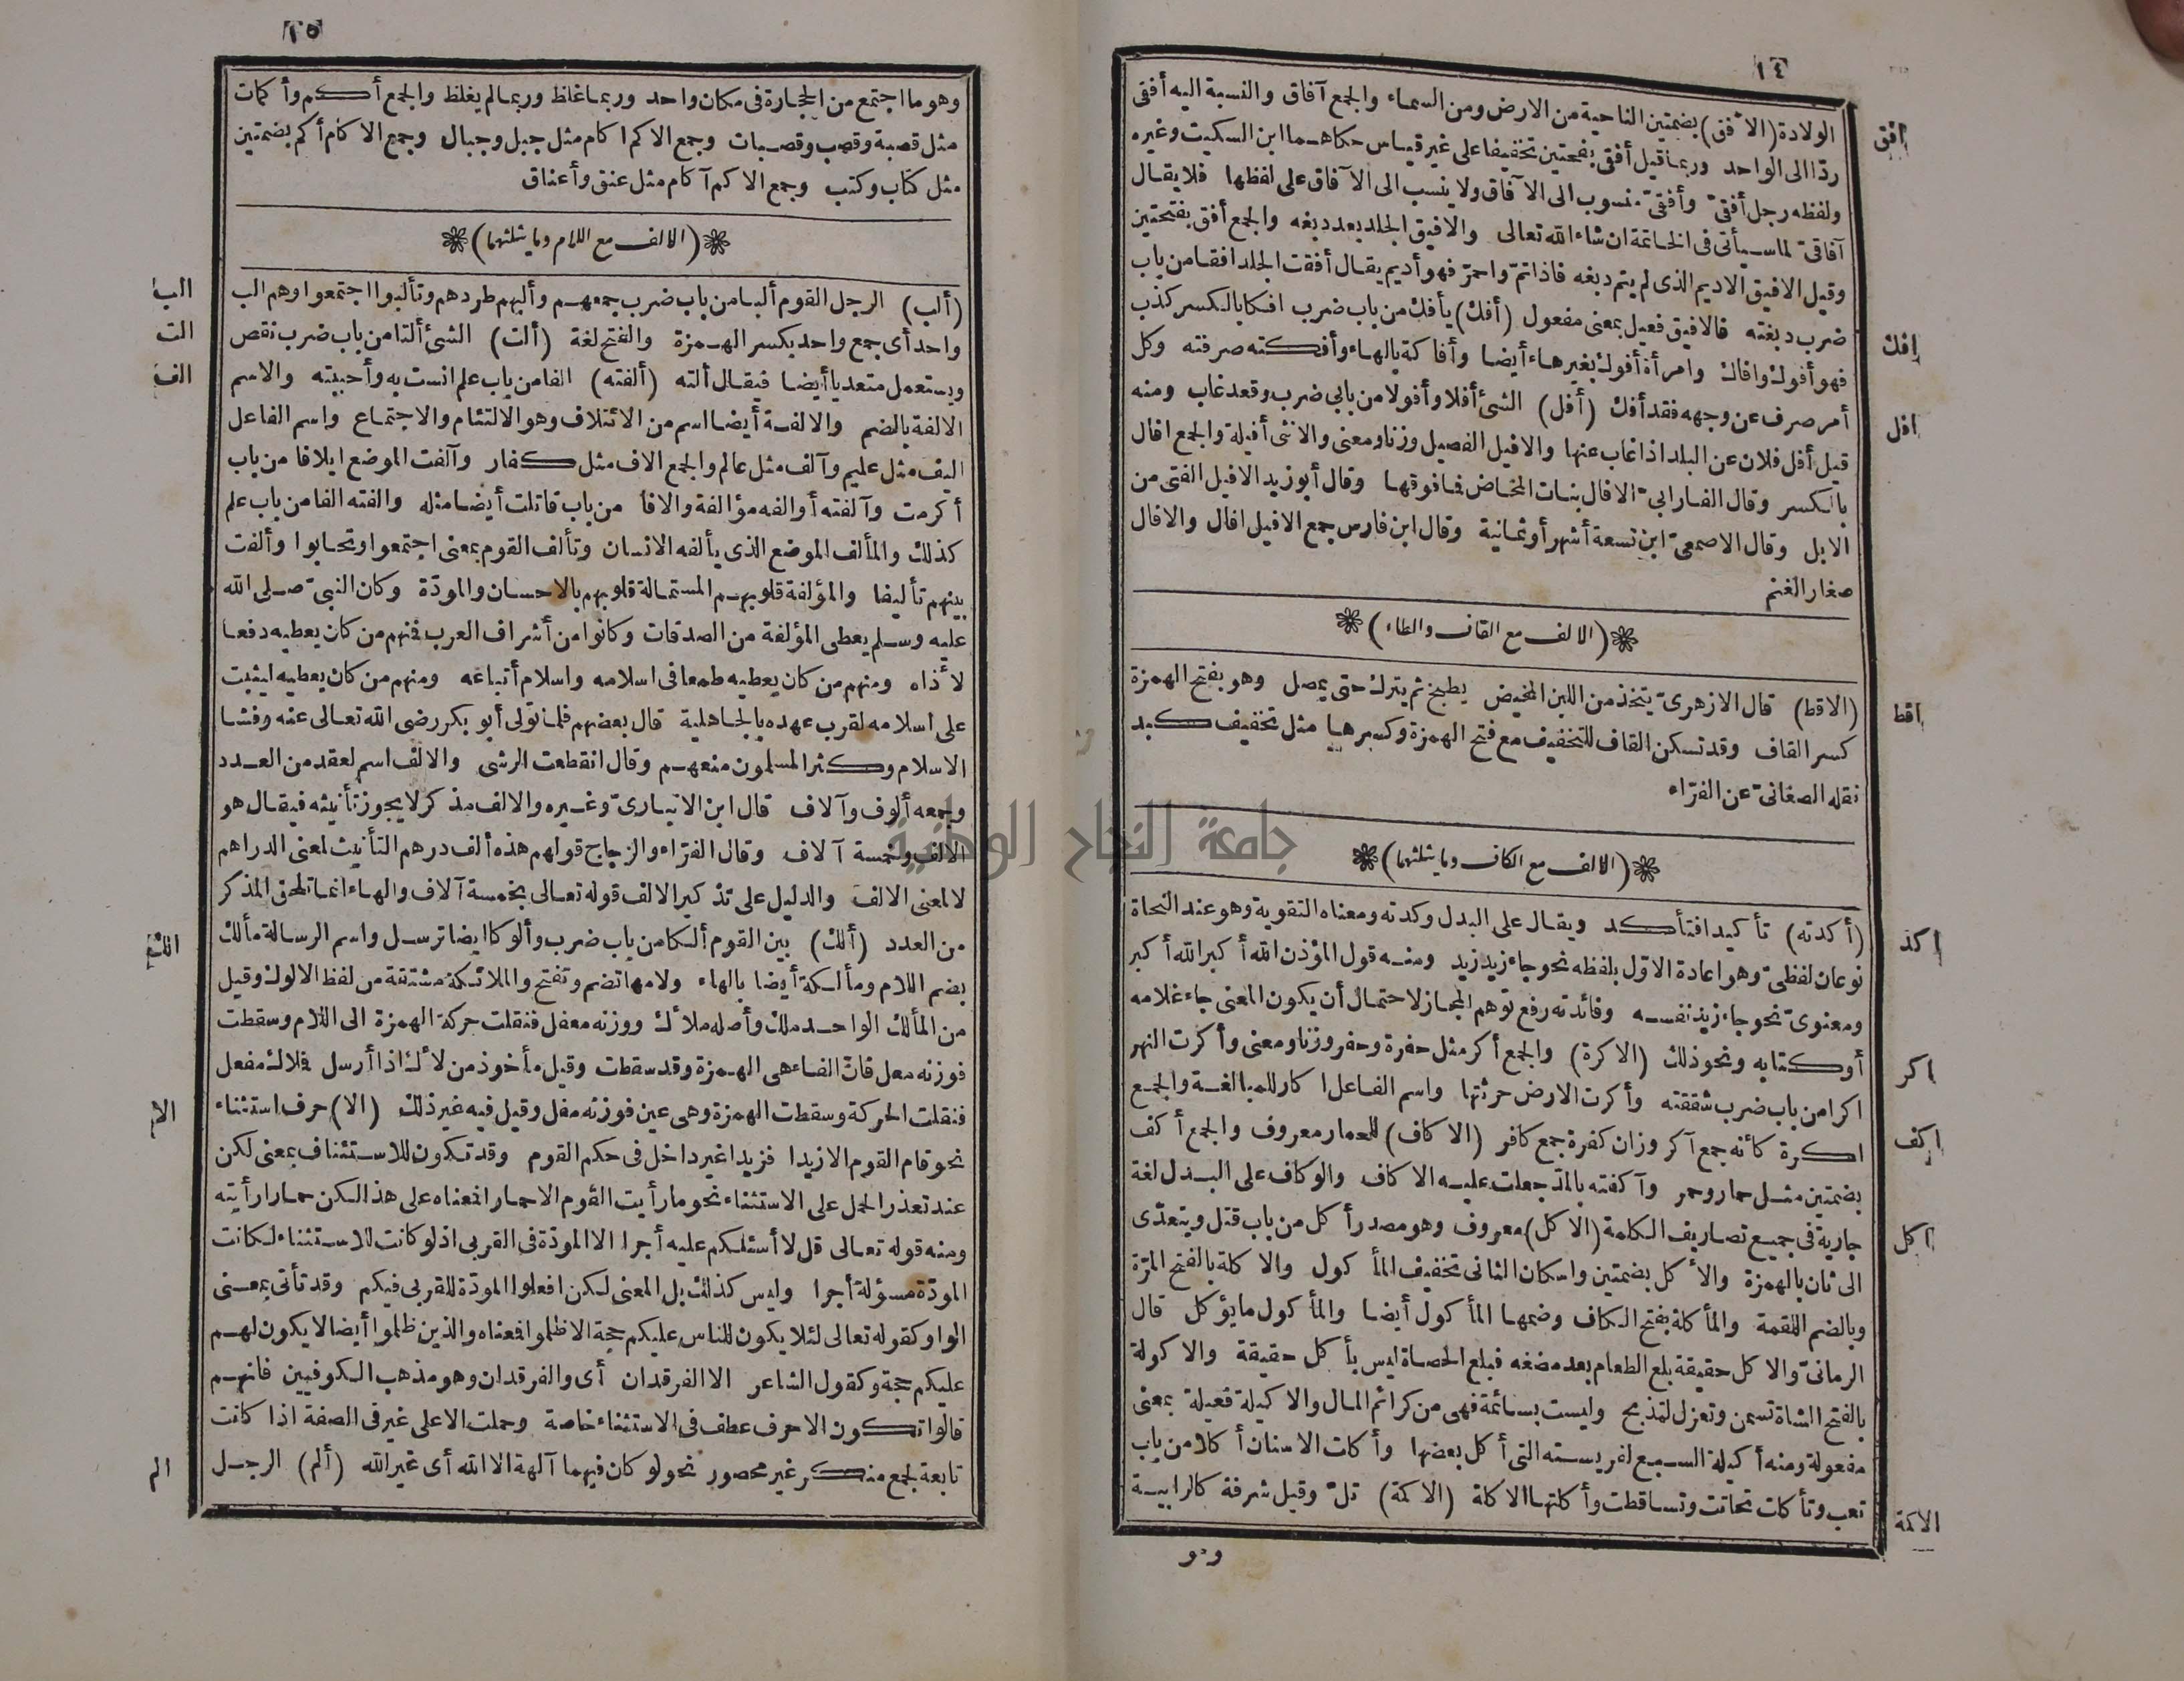 ١٤
الولادة (الأفق) بضمتين الناحية من الارض ومن السماء والجمع آفاق والنسبة اليه أفقى
افق
ردّا الى الواحد وربما قيل أفقى بفتحتين تخفيفا على غير قياس حكاهما ابن السكيت وغيره
ولفظه رجل أفقىّ وأفقىّ منسوب الى الآفاق ولا ينسب الى الآفاق على لفظها فلا يقال
آفاقىّ لما سيأتى فى الخاتمة ان شاء الله تعالى والافيق الجلد بعد دبغه والجمع أفق بفتحتين
وقيل الافيق الاديم الذى لم يتم دبغه فاذا تمّ واحمرّ فهو أديم يقال أفقت الجلد افقا من باب
ضرب دبغته فالافيق فعيل بمعنى مفعول (أفك) يأفك من باب ضرب افكا بالكسر كذب
افك
فهو أفوك وافاك وامرأة أفوك بغير هاء أيضا وأفاكة بالهاء وأفكته صرفته وكل
أمر صرف عن وجهه فقد أفك (أفل) الشئ أفلا وأفولا من بابى ضرب وقعد غاب ومنه
افل
قيل أفل فلان عن البلد اذا غاب عنها والافيل الفصيل وزنا ومعنى والانثى أفيلة والجمع افال
بالكسر وقال الفارابىّ الافال بنات المخاض فما فوقها وقال أبو زيد الافيل الفتى من
الابل وقال الاصمعىّ ابن تسعة أشهر أو ثمانية وقال ابن فارس جمع الافيل افال والافال
صغار الغنم
(الالف مع القاف والطاء)
(الاقط) قال الازهرىّ يتخذ من اللبن المخيض يطبخ ثم يترك حتى يمصل وهو بفتح الهمزة
اقط
كسر القاف وقد تسكن القاف للتخفيف مع فتح الهمزة وكسرها مثل تخفيف كبد
نقله الصغانىّ عن الفرّاء
(الالف مع الكاف وما يثلثهما)
(أكدته) تأكيدا فتأكد ويقال على البدل وكدته ومعناه التقوية وهو عند النحاة
اكد
نوعان لفظىّ وهو اعادة الاوّل بلفظه نحو جاء زيد زيد ومنه قول المؤذن الله أكبر الله أكبر
ومعنوىّ نحو جاء زيد نفسه وفائدته رفع توهم المجاز لاحتمال أن يكون المعنى جاء غلامه
أو كتابه ونحو ذلك (الاكرة) والجمع أكر مثل حفرة وحفر وزنا ومعنى وأكرت النهر
اكر
اكرا من باب ضرب شققته وأكرت الارض حرثتها واسم الفاعل اكار للمبالغة والجمع
اكرة كأنه جمع آكر وزان كفرة جمع كافر (الاكاف) للحمار معروف والجمع أكف
اكف
بضمتين مثل حمار وحمر وآكفته بالمدّ جعلت عليه الاكاف والوكاف على البدل لغة
جارية فى جميع تصاريف الكلمة (الاكل) معروف وهو مصدر أكل من باب قتل ويتعدّى
اكل
الى ثان بالهمزة والأكل بضمتين واسكان الثانى تخفيف المأكول والاكلة بالفتح المرّة
وبالضم اللقمة والمأكلة بفتح الكاف وضمها المأكول أيضا والمأكول ما يؤكل قال
الرمانىّ والاكل حقيقة بلع الطعام بعد مضغه فبلع الحصاة ليس بأكل حقيقة والاكولة
بالفتح الشاة تسمن وتعزل لتذبح وليست بسائمة فهى من كرائم المال والاكيلة فعيلة بمعنى
مفعولة ومنه أكيلة السبع لفريسته التى أكل بعضها وأكلت الاسنان أكلا من باب
تعب وتأكلت تحاتت وتساقطت وأكلتها الاكلة (الاكمة) تلّ وقيل شرفة كالرابية
الاكمة
وهو
١٥
وهو ما اجتمع من الحجارة فى مكان واحد وربما غلظ وربما لم يغلظ والجمع أكم وأكمات
مثل قصبة وقصب وقصبات وجمع الاكم اكام مثل جبل وجبال وجمع الاكام أكم بضمتين
مثل كتاب وكتب وجمع الاكم آكام مثل عنق وأعناق
(الالف مع اللام وما يثلثهما)
(ألب) الرجل القوم ألبا من باب ضرب جمعهم وألبهم طردهم وتألبوا اجتمعوا وهم الب
الب
واحد أى جمع واحد بكسر الهمزة والفتح لغة (ألت) الشئ ألتا من باب ضرب نقص
الت
ويستعمل متعديا أيضا فيقال ألته (ألفته) الفا من باب علم انست به وأحببته والاسم
الف
الالفة بالضم والالفة أيضا اسم من الائتلاف وهو الالتئام والاجتماع واسم الفاعل
اليف مثل عليم وآلف مثل عالم والجمع الاف مثل كفار وآلفت الموضع ايلافا من باب
أكرمت وآلفته أوالفه مؤالفة والافا من باب قاتلت أيضا مثله والفته الفا من باب علم
كذلك والمألف الموضع الذى يألفه الانسان وتألف القوم بمعنى اجتمعوا وتحابوا وألفت
بينهم تأليفا والمؤلفة قلوبهم المستمالة قلوبهم بالاحسان والمودّة وكان النبىّ صلى الله
عليه وسلم يعطى المؤلفة من الصدقات وكانوا من أشراف العرب فمنهم من كان يعطيه دفعا
لأذاه ومنهم من كان يعطيه طمعا فى اسلامه واسلام أتباعه ومنهم من كان يعطيه ليثبت
على اسلامه لقرب عهده بالجاهلية قال بعضهم فلما تولى أبو بكر رضى الله تعالى عنه وفشا
الاسلام وكثر المسلمون منعهم وقال انقطعت الرشى والالف اسم لعقد من العدد
وجمعه ألوف وآلاف قال ابن الانبارىّ وغيره والالف مذكر لا يجوز تأنيثه فيقال هو
الالف وخمسة آلاف وقال الفرّاء والزجاج قولهم هذه ألف درهم التأنيث لمعنى الدراهم
لا لمعنى الالف والدليل على تذكير الالف قوله تعالى بخمسة آلاف والهاء انما تلحق المذكر
من العدد (ألك) بين القوم ألكا من باب ضرب وألوكا ايضا ترسل واسم الرسالة مألك
الك
بضم اللام ومألكة أيضا بالهاء ولامها تضم وتفتح والملائكة مشتقة من لفظ الالوك وقيل
من المألك الواحد ملك وأصله ملأك ووزنه معفل فنقلت حركة الهمزة الى اللام وسقطت
فوزنه معل فانّ الفاء هى الهمزة وقد سقطت وقيل مأخوذ من لأك اذا أرسل فلاك مفعل
فنقلت الحركة وسقطت الهمزة وهى عين فوزنه مفل وقيل فيه غير ذلك (الا) حرف استثناء
الا
نحو قام القوم الا زيدا فزيدا غير داخل فى حكم القوم وقد تكون للاستئناف بمعنى لكن
عند تعذر الحمل على الاستثناء نحو ما رأيت القوم الا حمارا فمعناه على هذا لكن حمارا رأيته
ومنه قوله تعالى قل لا أسئلكم عليه أجرا الا المودّة فى القربى اذ لو كانت للاستثناء لكانت
المودّة مسؤلة أجرا وليس كذلك بل المعنى لكن افعلوا المودّة للقربى فيكم وقد تأتى بمعنى
الواو كقوله تعالى لئلا يكون للناس عليكم حجة الا ظلموا فمعناه والذين ظلموا أيضا لا يكون لهم
عليكم حجة وكقول الشاعر الا الفرقدان أى والفرقدان وهو مذهب الكوفيين فانهم
قالوا تكون الا حرف عطف فى الاستثناء خاصة وحملت الا على غير فى الصفة اذا كانت
تابعة لجمع منكر غير محصور نحو لو كان فيهما آلهة الا الله أى غير الله (ألم) الرجل
الم
جامعة النجاح الوطنية